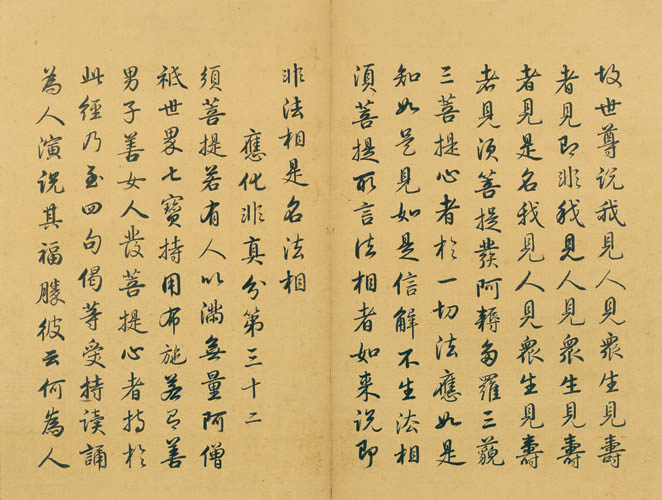 故世尊说我見人見衆生見壽
者見即非我見人見衆生見壽
者見是名我見人見衆生見壽
者見須菩提發阿耨多羅三藐
三菩提心者於一切法應如是
知如是見如是信解不生法相
須菩提所言法相者如来说即
非法相是名法相
應化非真分第三十二
須菩提若有人以滿無量阿僧
祇世界七寶持用布施若有善
男子善女人發菩提心者持於
此經乃至四句偈等受持读誦
為人演说其福勝彼云何為人